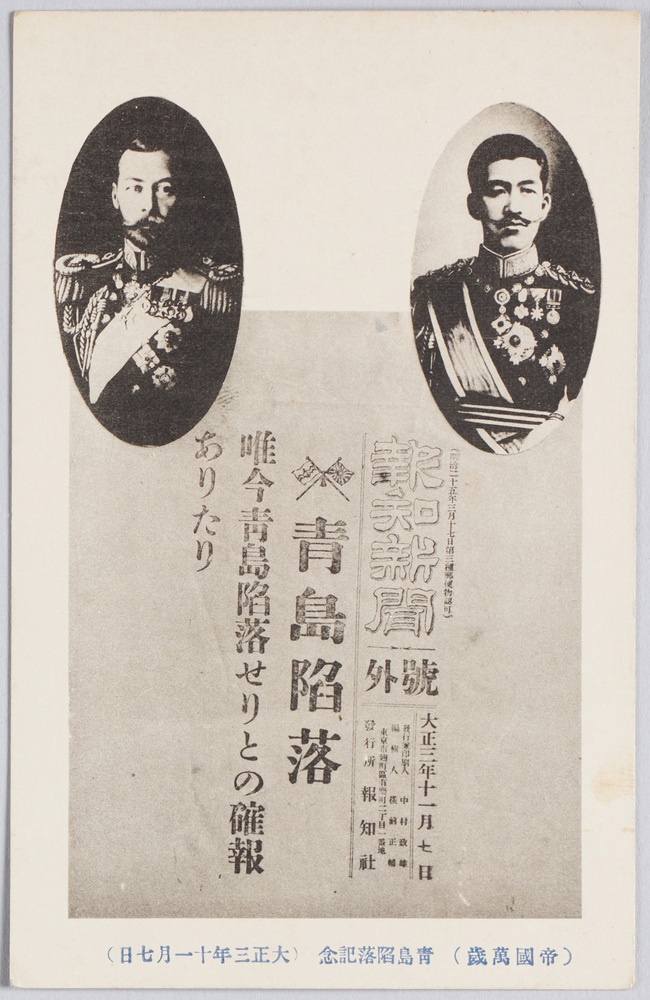 (明治二十五年三月十七日第三種郵便物認可)
報知新聞
號外
大正三年十一月七日
發行兼印刷人 中村政雄
東京市麹町區有樂町二丁目一番地
發行所 報知社
青島陷落
唯今青島陷落せりとの確報
ありたり
(帝國萬歲) 青島陷落記念 (大正三年十一月七日)